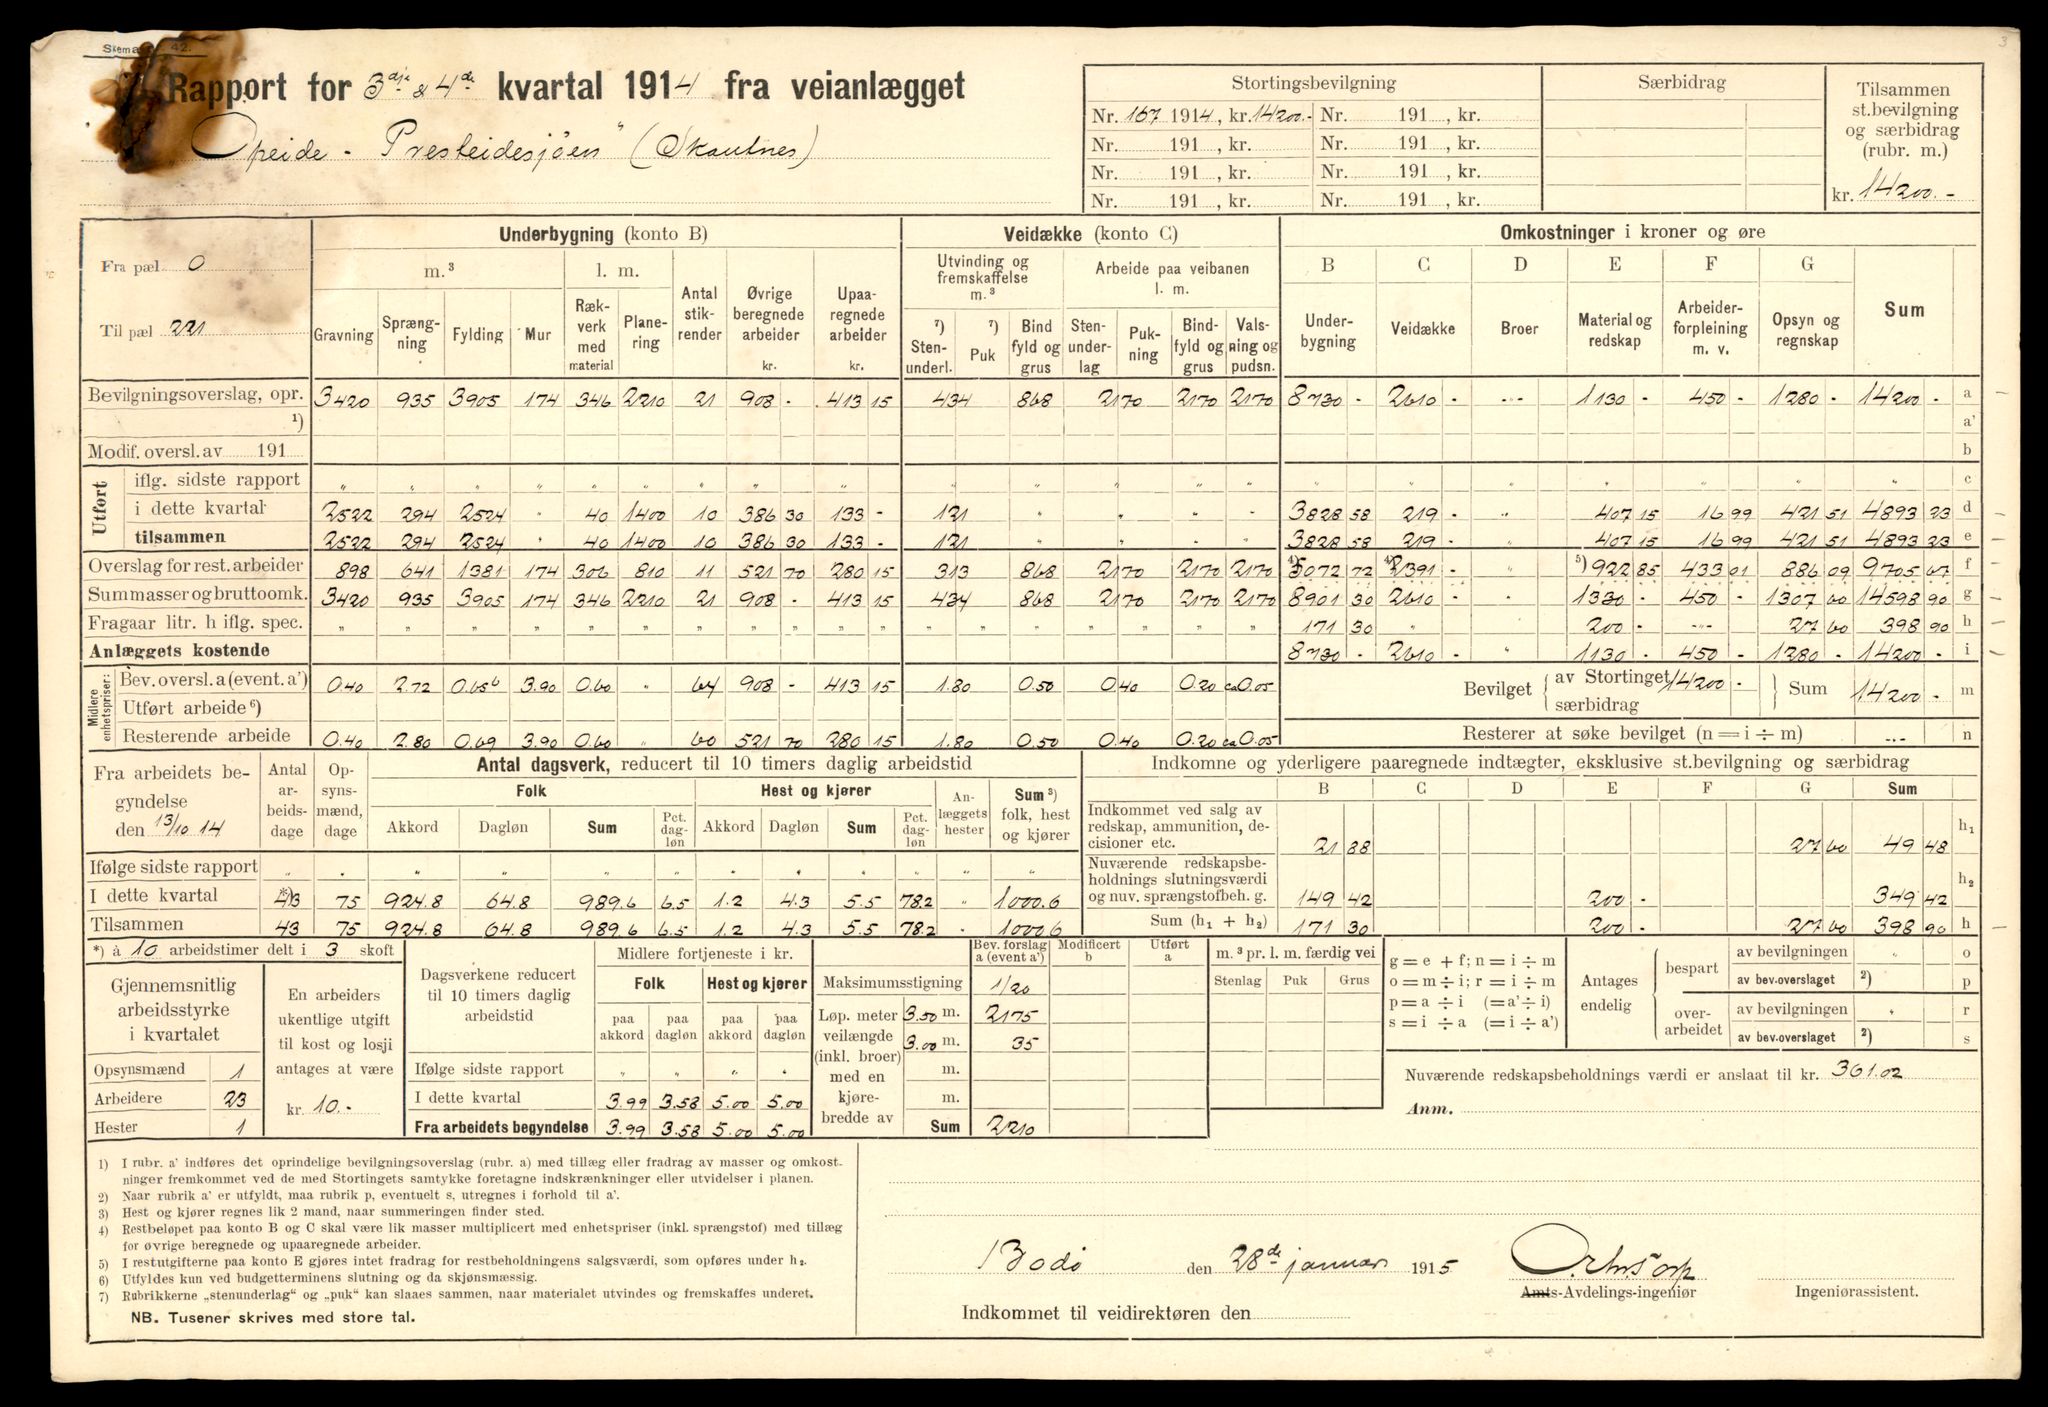 Skema 42.
Rapport for 3dje & 4de kvartal 1914 fra veianlægget
"Opeide - Presteidesjøen" (Skautnes)
Stortingsbevilgning | Særbidrag | Tilsammen st.bevilgning og særbidrag (rubr. m.)
Nr. 167 1914, kr. 14200.- Nr. 191 , kr.
Nr. 191 , kr. Nr. 191 , kr.
Nr. 191 , kr. Nr. 191 , kr.
Nr. 191 , kr. Nr. 191 , kr.
kr. 14200.-
Fra pæl 0
Til pæl 221
Underbygning (konto B) | Veidække (konto C) | Omkostninger i kroner og øre
m.³ | l. m. | Antal stikrender | Øvrige beregnede arbeider kr. | Upaaregnede arbeider kr. | Utvinding og fremskaffelse m.³ | Arbeide paa veibanen l. m. | B | C | D | E | F | G | Sum
Gravning | Sprængning | Fylding | Mur | Rækverk med material | Planering | ⁷) Stenunderl. | ⁷) Puk | Bindfyld og grus | Stenunderlag | Pukning | Bindfyld og grus | Valsning og pudsn. | Underbygning | Veidække | Broer | Material og redskap | Arbeiderforpleining m. v. | Opsyn og regnskap
Bevilgningsoverslag, opr. 3420 935 3905 174 346 2210 21 908 - 413 15 434 868 2170 2170 2170 8730 - 2610 - -"- 1130 - 450 - 1280 - 14200 - a
¹) a'
Modif. oversl. av 191 b
Utført
iflg. sidste rapport " " " " " " " " " " " " " " " " " " " " " c
i dette kvartal 2522 294 2524 " 40 1400 10 386 30 133 - 121 " " " " 3828 58 219 - " 407 15 16 99 421 51 4893 23 d
tilsammen 2522 294 2524 " 40 1400 10 386 30 133 - 121 " " " " 3828 58 219 - " 407 15 16 99 421 51 4893 23 e
Overslag for rest. arbeider 898 641 1381 174 306 810 11 521 70 280 15 313 868 2170 2170 2170 ⁴) 5072 72 ⁴) 2391 - " ⁵) 922 85 433 01 886 09 9705 67 f
Summasser og bruttoomk. 3420 935 3905 174 346 2210 21 908 - 413 15 434 868 2170 2170 2170 8901 30 2610 - 1330 - 450 - 1307 60 14598 90 g
Fragaar litr. h iflg. spec. " " " " " " " " " " " " " " " " 171 30 " 200 - -"- 27 60 398 90 h
Anlæggets kostende 8730 - 2610 - " 1130 - 450 - 1280 - 14200 - i
Midlere enhetspriser:
Bev. oversl. a (event. a') 0.40 2.72 0.656 3.90 0.60 " 64 908 - 413 15 1.80 0.50 0.40 0.20 ca 0.05
Utført arbeide ⁶)
Resterende arbeide 0.40 2.80 0.69 3.90 0.60 " 60 521 70 280 15 1.80 0.50 0.40 0.20 ca 0.05
Bevilget { av Stortinget 14200 - særbidrag } Sum 14200 - m
Resterer at søke bevilget (n = i ÷ m) -"- n
Fra arbeidets begyndelse den 13/10 14
Antal arbeidsdage | Opsynsmænd, dage | Antal dagsverk, reducert til 10 timers daglig arbeidstid
Folk | Hest og kjører | Anlæggets hester | Sum ³) folk, hest og kjører
Akkord | Dagløn | Sum | Pct. dagløn | Akkord | Dagløn | Sum | Pct. dagløn
Ifølge sidste rapport " " " " " " " " " " " "
I dette kvartal *) 43 75 924.8 64.8 989.6 6.5 1.2 4.3 5.5 78.2 " 1000.6
Tilsammen 43 75 924.8 64.8 989.6 6.5 1.2 4.3 5.5 78.2 - 1000.6
Indkomne og yderligere paaregnede indtægter, eksklusive st.bevilgning og særbidrag
B C D E G Sum
Indkommet ved salg av redskap, ammunition, decisioner etc. 21 88 27 60 49 48 h₁
Nuværende redskapsbeholdnings slutningsværdi og nuv. sprængstofbeh. g. 149 42 200 - 349 42 h₂
Sum (h₁ + h₂) 171 30 200 - 27 60 398 90 h
*) à 10 arbeidstimer delt i 3 skoft
Gjennemsnitlig arbeidsstyrke i kvartalet
Opsynsmænd 1
Arbeidere 23
Hester 1
En arbeiders ukentlige utgift til kost og losji antages at være
kr. 10.-
Dagsverkene reducert til 10 timers daglig arbeidstid
Midlere fortjeneste i kr.
Folk | Hest og kjører
paa akkord | paa dagløn | paa akkord | paa dagløn
Ifølge sidste rapport " " " "
I dette kvartal 3.99 3.58 5.00 5.00
Fra arbeidets begyndelse 3.99 3.58 5.00 5.00
Bev. forslag a (event a') | Modificert b | Utført a
Maksimumsstigning 1/20
Løp. meter veilængde (inkl. broer) med en kjørebredde av
3.50 m. 2175
3.00 m. 35
m.
m.
Sum 2210
m.³ pr. l. m. færdig vei
Stenlag | Puk | Grus
g = e + f; n = i ÷ m
o = m ÷ i; r = i ÷ m
p = a ÷ i (= a' ÷ i)
s = i ÷ a (= i ÷ a')
Antages endelig
bespart
av bevilgningen " o
av bev.overslaget ²) p
overarbeidet
av bevilgningen " r
av bev.overslaget ²) s
Nuværende redskapsbeholdnings værdi er anslaat til kr. 361.02
Anm.
1) I rubr. a' indføres det oprindelige bevilgningsoverslag (rubr. a) med tillæg eller fradrag av masser og omkost-
ninger fremkommet ved de med Stortingets samtykke foretagne indskrænkninger eller utvidelser i planen.
2) Naar rubrik a' er utfyldt, maa rubrik p, eventuelt s, utregnes i forhold til a'.
3) Hest og kjører regnes lik 2 mand, naar summeringen finder sted.
4) Restbeløpet paa konto B og C skal være lik masser multiplicert med enhetspriser (inkl. sprængstof) med tillæg
for øvrige beregnede og upaaregnede arbeider.
5) I restutgifterne paa konto E gjøres intet fradrag for restbeholdningens salgsværdi, som opføres under h₂.
6) Utfyldes kun ved budgetterminens slutning og da skjønsmæssig.
7) Rubrikkerne „stenunderlag" og „puk" kan slaaes sammen, naar materialet utvindes og fremskaffes underet.
NB. Tusener skrives med store tal.
Bodø den 28de januar 1915
Amts-Avdelings-ingeniør
Ingeniørassistent.
Indkommet til veidirektøren den
3